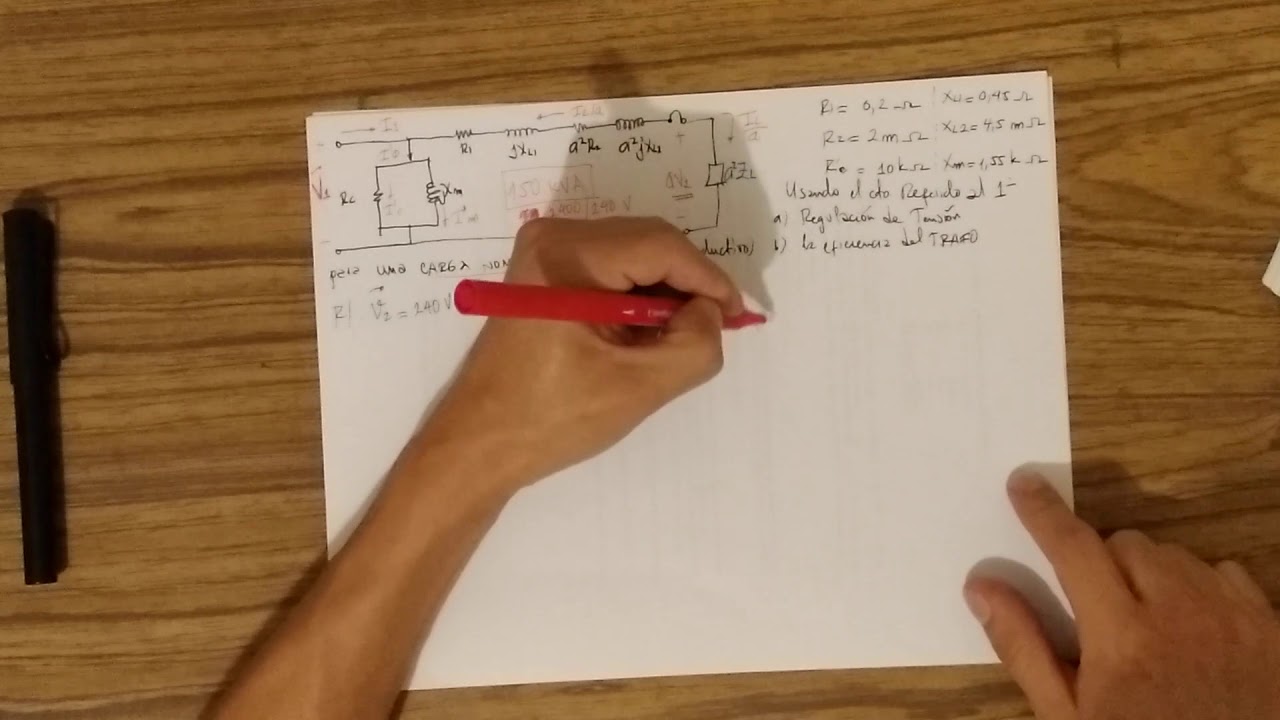 I1
I2/a
IL/a
R1 jXL1 a²R2 a²jXL2
I0
V1
Rc
Xm
Ic
Im
150 kVA
2400 / 240 V
aV2
a²ZL
R1 = 0,2 Ω XL1 = 0,45 Ω
R2 = 2 m Ω XL2 = 4,5 m Ω
= 10 k Ω Xm = 1,55 k Ω
Usando el cto Referido al 1
a) Regulación de Tensión
ductivo) b) la eficiencia del TRAFO
para una CARGA NOM
R/ V2 = 240 V